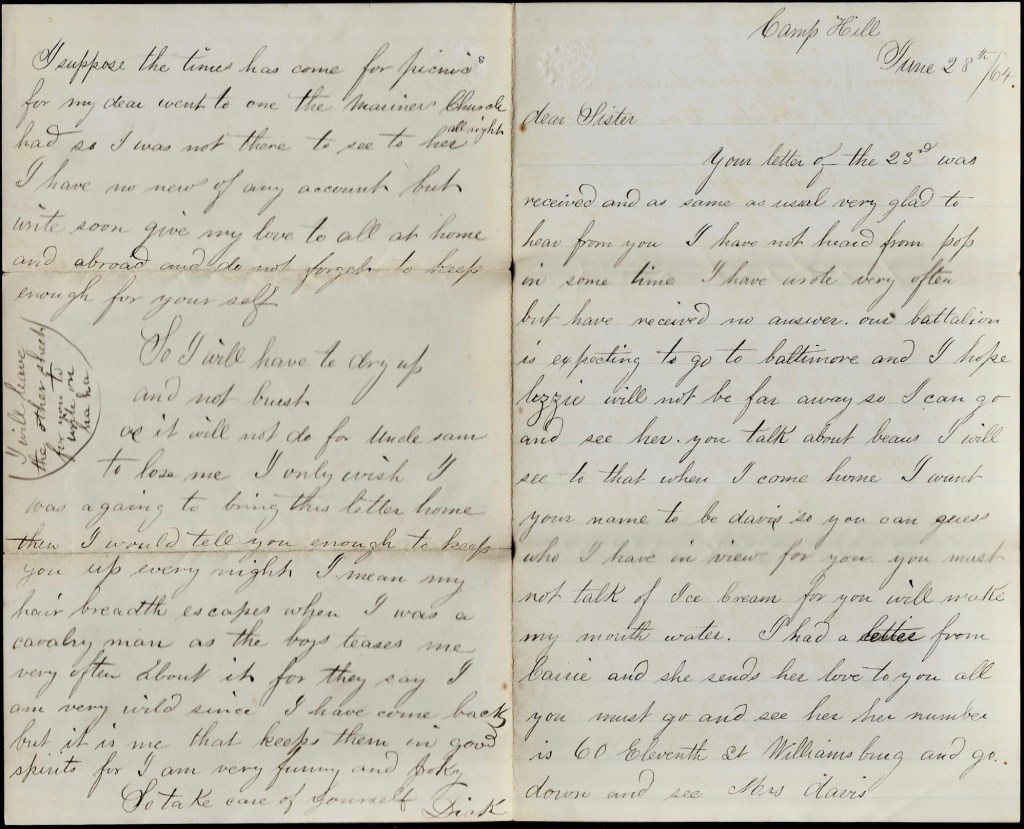 Camp Hill
June 28th/64.
dear Sister
Your letter of the 23rd was
received and as same as usual very glad to
hear from you I have not heard from pop
in some time I have wrote very often
but have received no answer. our battalion
is expecting to go to baltimore and I hope
lizzie will not be far away so I can go
and see her. you talk about beaus I will
see to that when I come home I want
your name to be davis so you can guess
who I have in view for you. you must
not talk of Ice Cream for you will make
my mouth water. I had a letter from
Carrie and she sends her love to you all
you must go and see her her number
is 60 Eleventh St Williamsburg and go.
down and see Mrs davis
I suppose the times has come for picnics
for my dear went to one the Mariners Church
had so I was not there to see to her all right
I have no news of any account but
write soon give my love to all at home
and abroad and do not forget to keep
enough for your self
So I will have to dry up
and not burst
as it will not do for Uncle sam
to lose me I only wish I
was agoing to bring this letter home
then I would tell you enough to keep
you up every night I mean my
hair breadth escapes when I was a
cavalry man as the boys teases me
very often about it for they say I
am very wild since I have come back
but it is me that keeps them in good
spirits for I am very funny and Joky
So take care of yourself Dick
I will leave
the other sheet
for you to
write on
ha ha